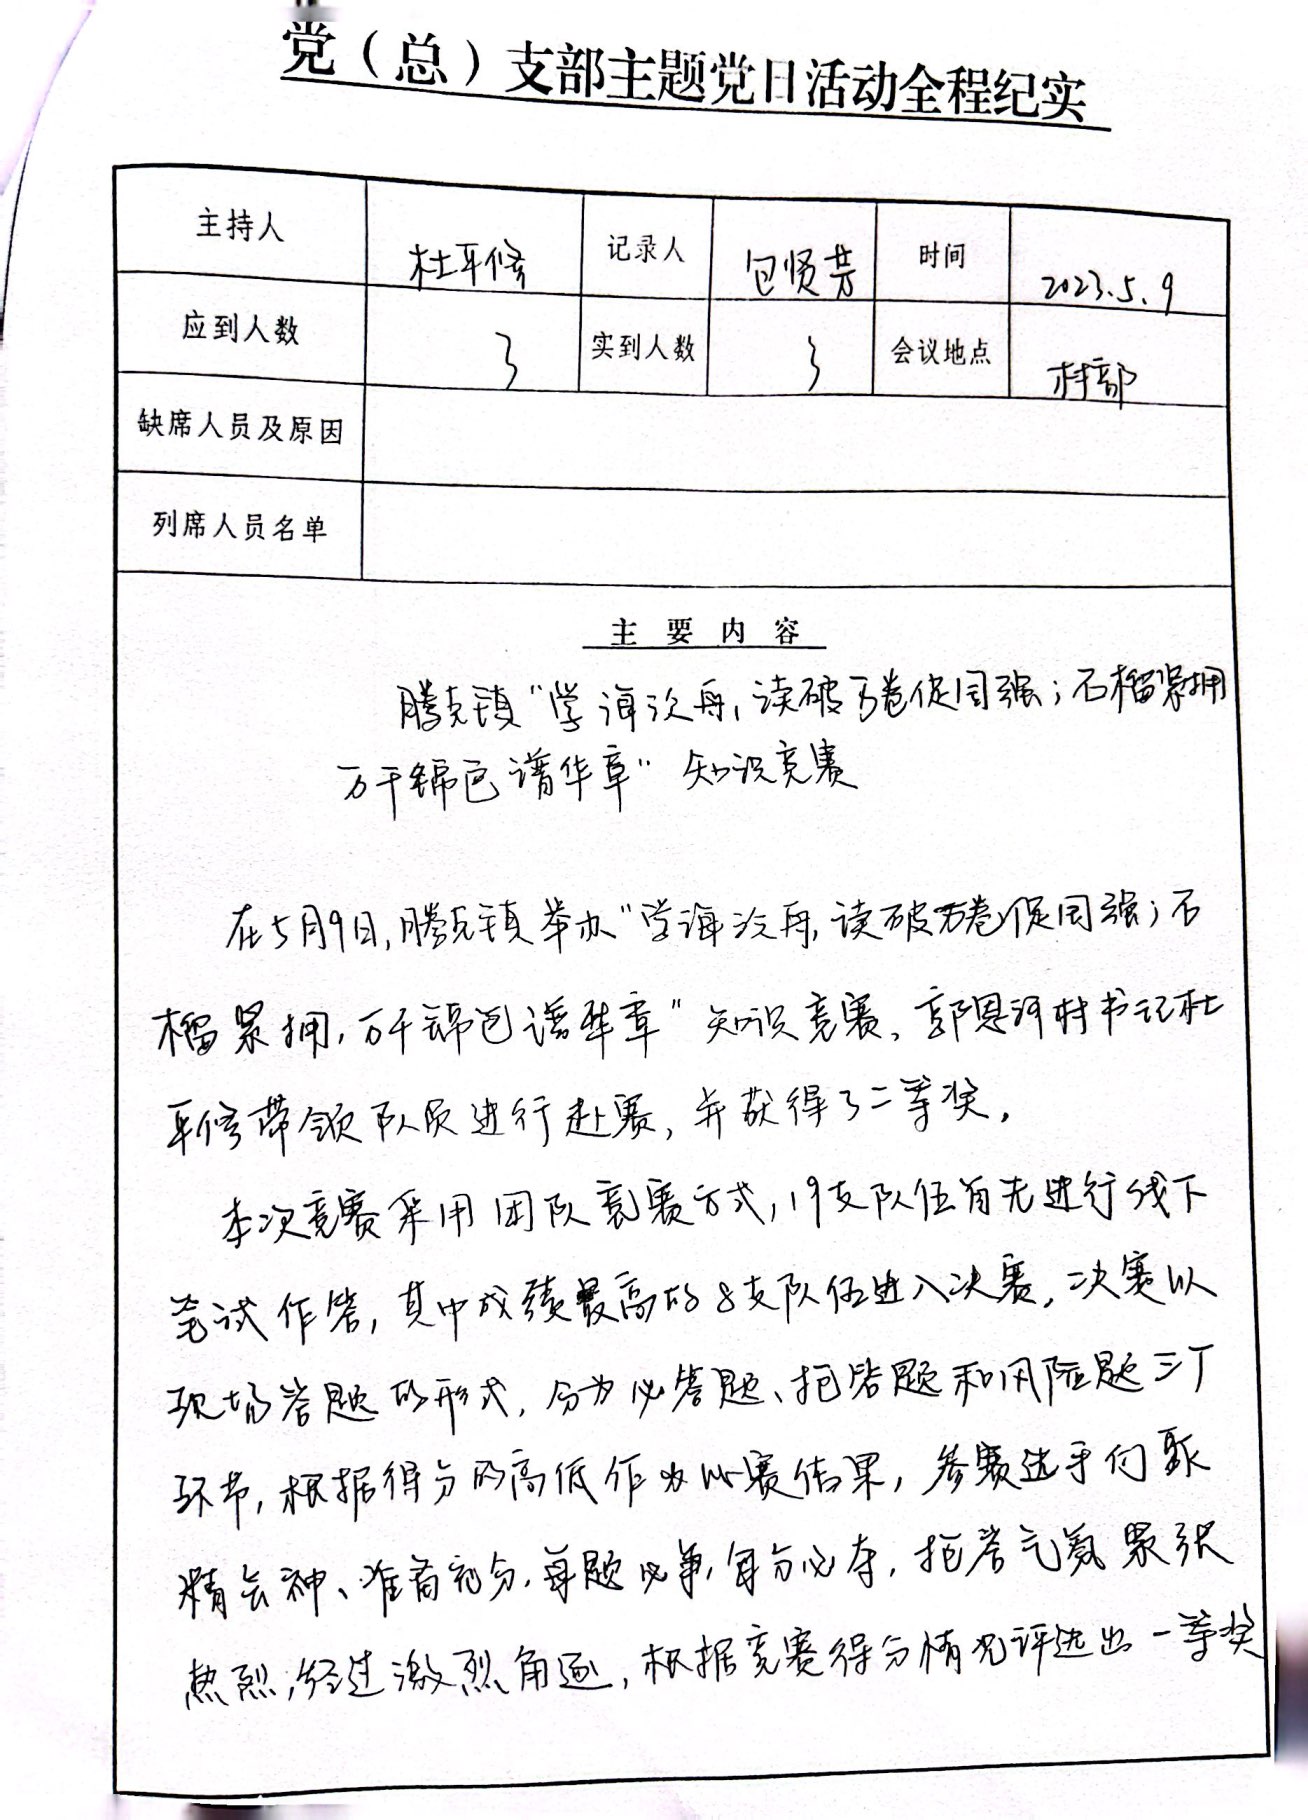 党（总）支部主题党日活动全程纪实
主持人 杜平修 记录人 包贤芳 时间 2023.5.9
应到人数 3 实到人数 3 会议地点 村部
缺席人员及原因
列席人员名单
主要内容
腾克镇“学海泛舟，读破万卷促国强；石榴紧拥
万千锦色谱华章”知识竞赛
在5月9日，腾克镇举办“学海泛舟，读破万卷促国强；石
榴紧拥，万千锦色谱华章”知识竞赛，郭恩河村书记杜
平修带领队员进行赴赛，并获得了二等奖。
本次竞赛采用团队竞赛方式，19支队伍首先进行线下
笔试作答，其中成绩最高的8支队伍进入决赛，决赛以
现场答题的形式，分为必答题、抢答题和风险题三个
环节，根据得分的高低作为比赛结果，参赛选手们聚
精会神、准备充分，每题必争，每分必夺，抢答气氛紧张
热烈，经过激烈角逐，根据竞赛得分情况评选出一等奖